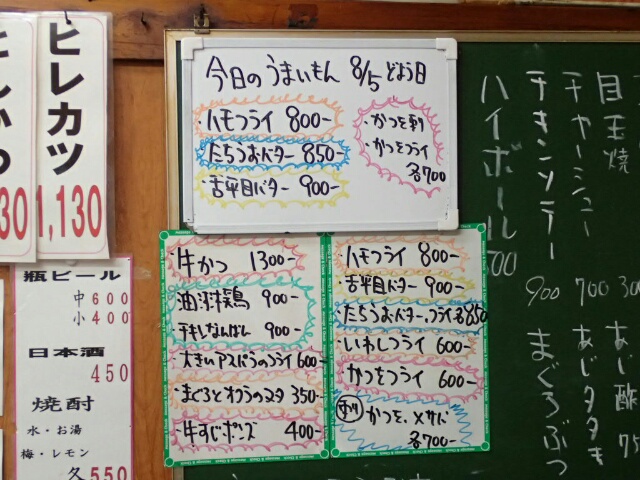 ヒレカツ
1,130
30
瓶ビール
中 600
小 400
日本酒
450
焼酎
水・お湯
梅・レモン
各550
今日のうまいもん 8/5 どよう日
ハモフライ 800-
たちうおバター 850-
舌平目バター 900-
・かつを刺
・かつをフライ
各700
・牛かつ 1300-
油淋鶏 900-
チキンなんばん 900-
大きのアスパラのフライ 600-
まぐろとオクラのヌタ 350-
牛すじポンズ 400-
・ハモフライ 800-
・舌平目バター 900-
・たちうおバター、フライ各850
・いわしフライ 600-
かつをフライ 600-
刺 かつを、メサバ
各700-
目玉焼 300
チャーシュー 700
チキンソテー 900
ハイボール
あじ酢 75
あじタタキ
まぐろぶつ